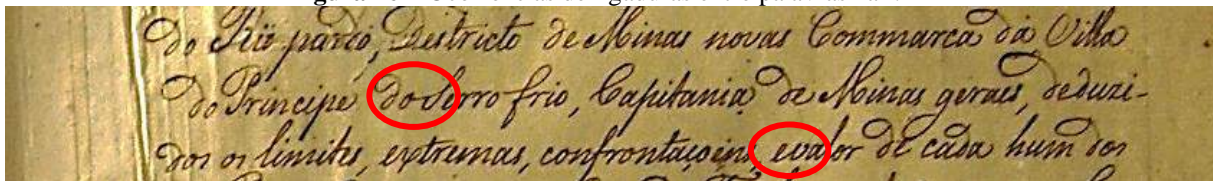 do Rio pardo, Districto de Minas novas Commarca da Villa
do Principe do Serro frio, Capitania de Minas geraes, deduzi-
dos os limites, extremas, confrontaçoens, evalor de cada hum dos